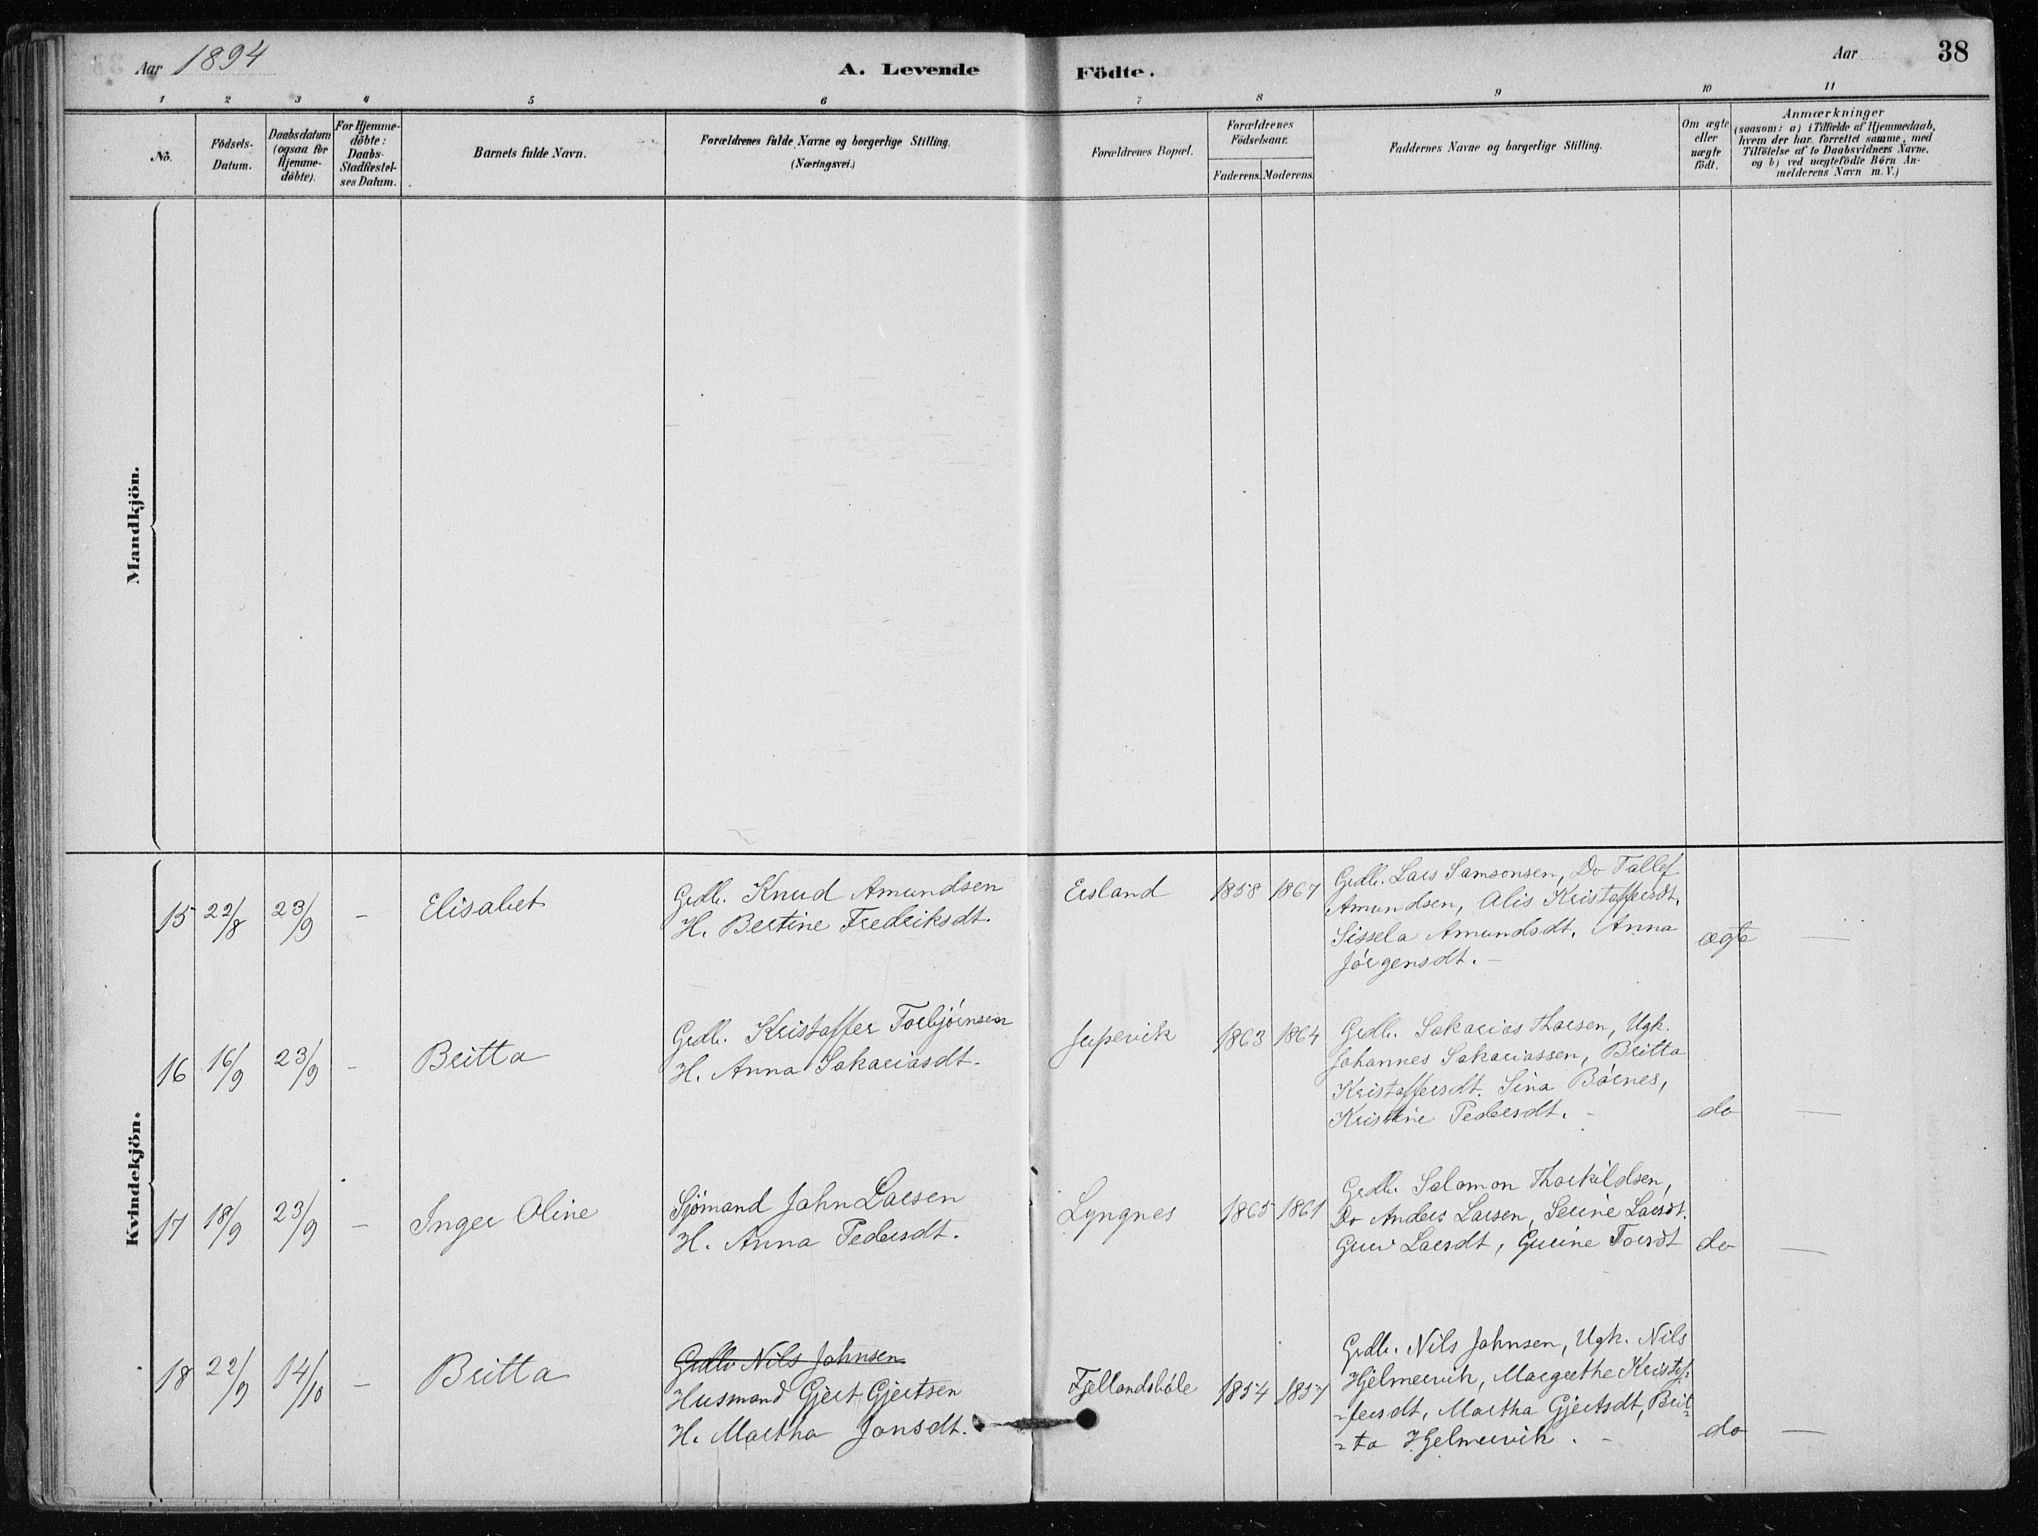 Aar 1894
A. Levende Födte.
Aar
38
1 2 3 4 5 6 7 8 9 10 11
No.
Födsels-
Datum.
Daabsdatum
(ogsaa for
Hjemme-
döbte).
For Hjemme-
döbte:
Daabs-
Stadfæstel-
ses Datum.
Barnets fulde Navn.
Forældrenes fulde Navne og borgerlige Stilling.
(Næringsvei.)
Forældrenes Bopæl.
Forældrenes
Födselsaar.
Faderens. Moderens.
Faddernes Navne og borgerlige Stilling.
Om ægte
eller
uægte
födt.
Anmærkninger
(saasom: a) i Tilfælde af Hjemmedaab,
hvem der har forrettet samme, med
Tilföielse af to Daabsvidners Navne,
og b) ved uægtefödte Börn An-
melderens Navn m. V.)
Mandkjön.
Kvindekjön.
15 22/8 23/9 – Elisabet
Grdb. Knud Amundsen
H. Bertine Fredriksdt.
Ersland 1858 1867
Grdb. Lars Samsonsen, Do Tallef
Amundsen, Alis Kristoffersdt,
Sissela Amundsdt. Anna
Jörgensdt. –
ægte –
16 16/9 23/9 – Britta
Grdb. Kristoffer Torbjörnsen
H. Anna Sakariasdt.
Jupevik 1863 1864
Grdb. Sakarias Thorsen, Ugk.
Johannes Sakariassen, Britta
Kristoffersdt. Sina Börnes,
Kristine Pedersdt. –
do –
17 18/9 23/9 – Inger Oline
Sjömand John Larsen
H. Anna Pedersdt.
Lyngnes 1865 1861
Grdb. Salomon Thorkildsen,
Do Anders Larsen, Serine Larsdt.
Guri Larsdt, Gurine Torsdt
do –
18 22/9 14/10 – Britta
Grdb Nils Johnsen
Husmand Gjert Gjertsen
H. Martha Jonsdt.
Fjellandsböle 1854 1857
Grdb. Nils Johnsen, Ugk. Nils
Hjelmervik, Margrethe Kristof-
=fersdt, Martha Gjertsdt, Brit=
=ta Hjelmervik. –
do –